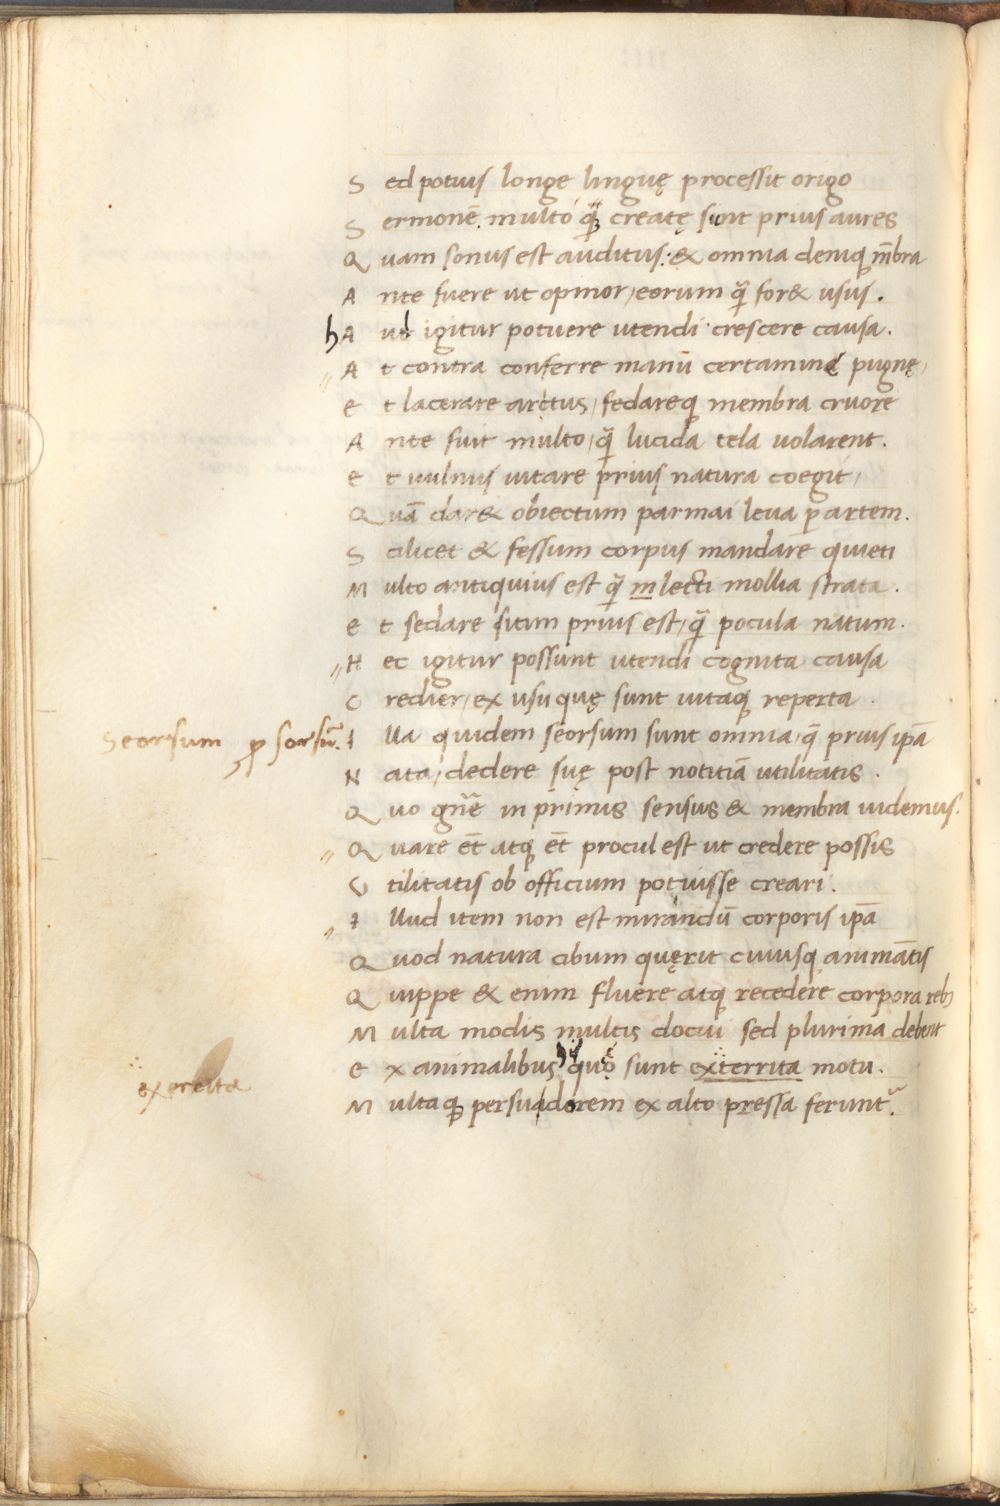 S ed potius longe linguę processit origo
S ermonē. multo q̃ creatę sunt prius aures
Q uam sonus est auditus: & omnia deniq; mēbra
A nte fuere ut opinor, eorum q̃ for& usus.
hA ud igitur potuere utendi crescere causa.
A t contra conferre manū certamina pugnę,
E t lacerare arctus, fedareq; membra cruore
A nte fuit multo, q̃ lucida tela uolarent.
E t uulnus uitare prius natura coegit,
Q uā dar& obiectum parmai leua p artem.
S cilicet & fessum corpus mandare quieti
M ulto antiquius est q̃ in lecti mollia strata.
E t sedare sitim prius est, q̃ pocula natum.
H ec igitur possunt utendi cognita causa
C redier, ex usu quę sunt uitaq; reperta.
Seorsum p sorsū.
I lla quidem seorsum sunt omnia, q̄ prius ipā
N ata, dedere suę post notitiā utilitatis.
Q uo gn̄e in primis sensus & membra uidemus.
Q uare ēt atq; ēt procul est ut credere possis
U tilitatis ob officium potuisse creari.
I llud item non est mirandū corporis ipā
Q uod natura cibum quęrit cuiusq; animātis
Q uippe & enim fluere atq; recedere corpora reb;
M ulta modis multis docui sed plurima debent
E x animalibus quę sunt exterrita motu.
exercita
M ultaq; persudorem ex alto pressa feruntr.